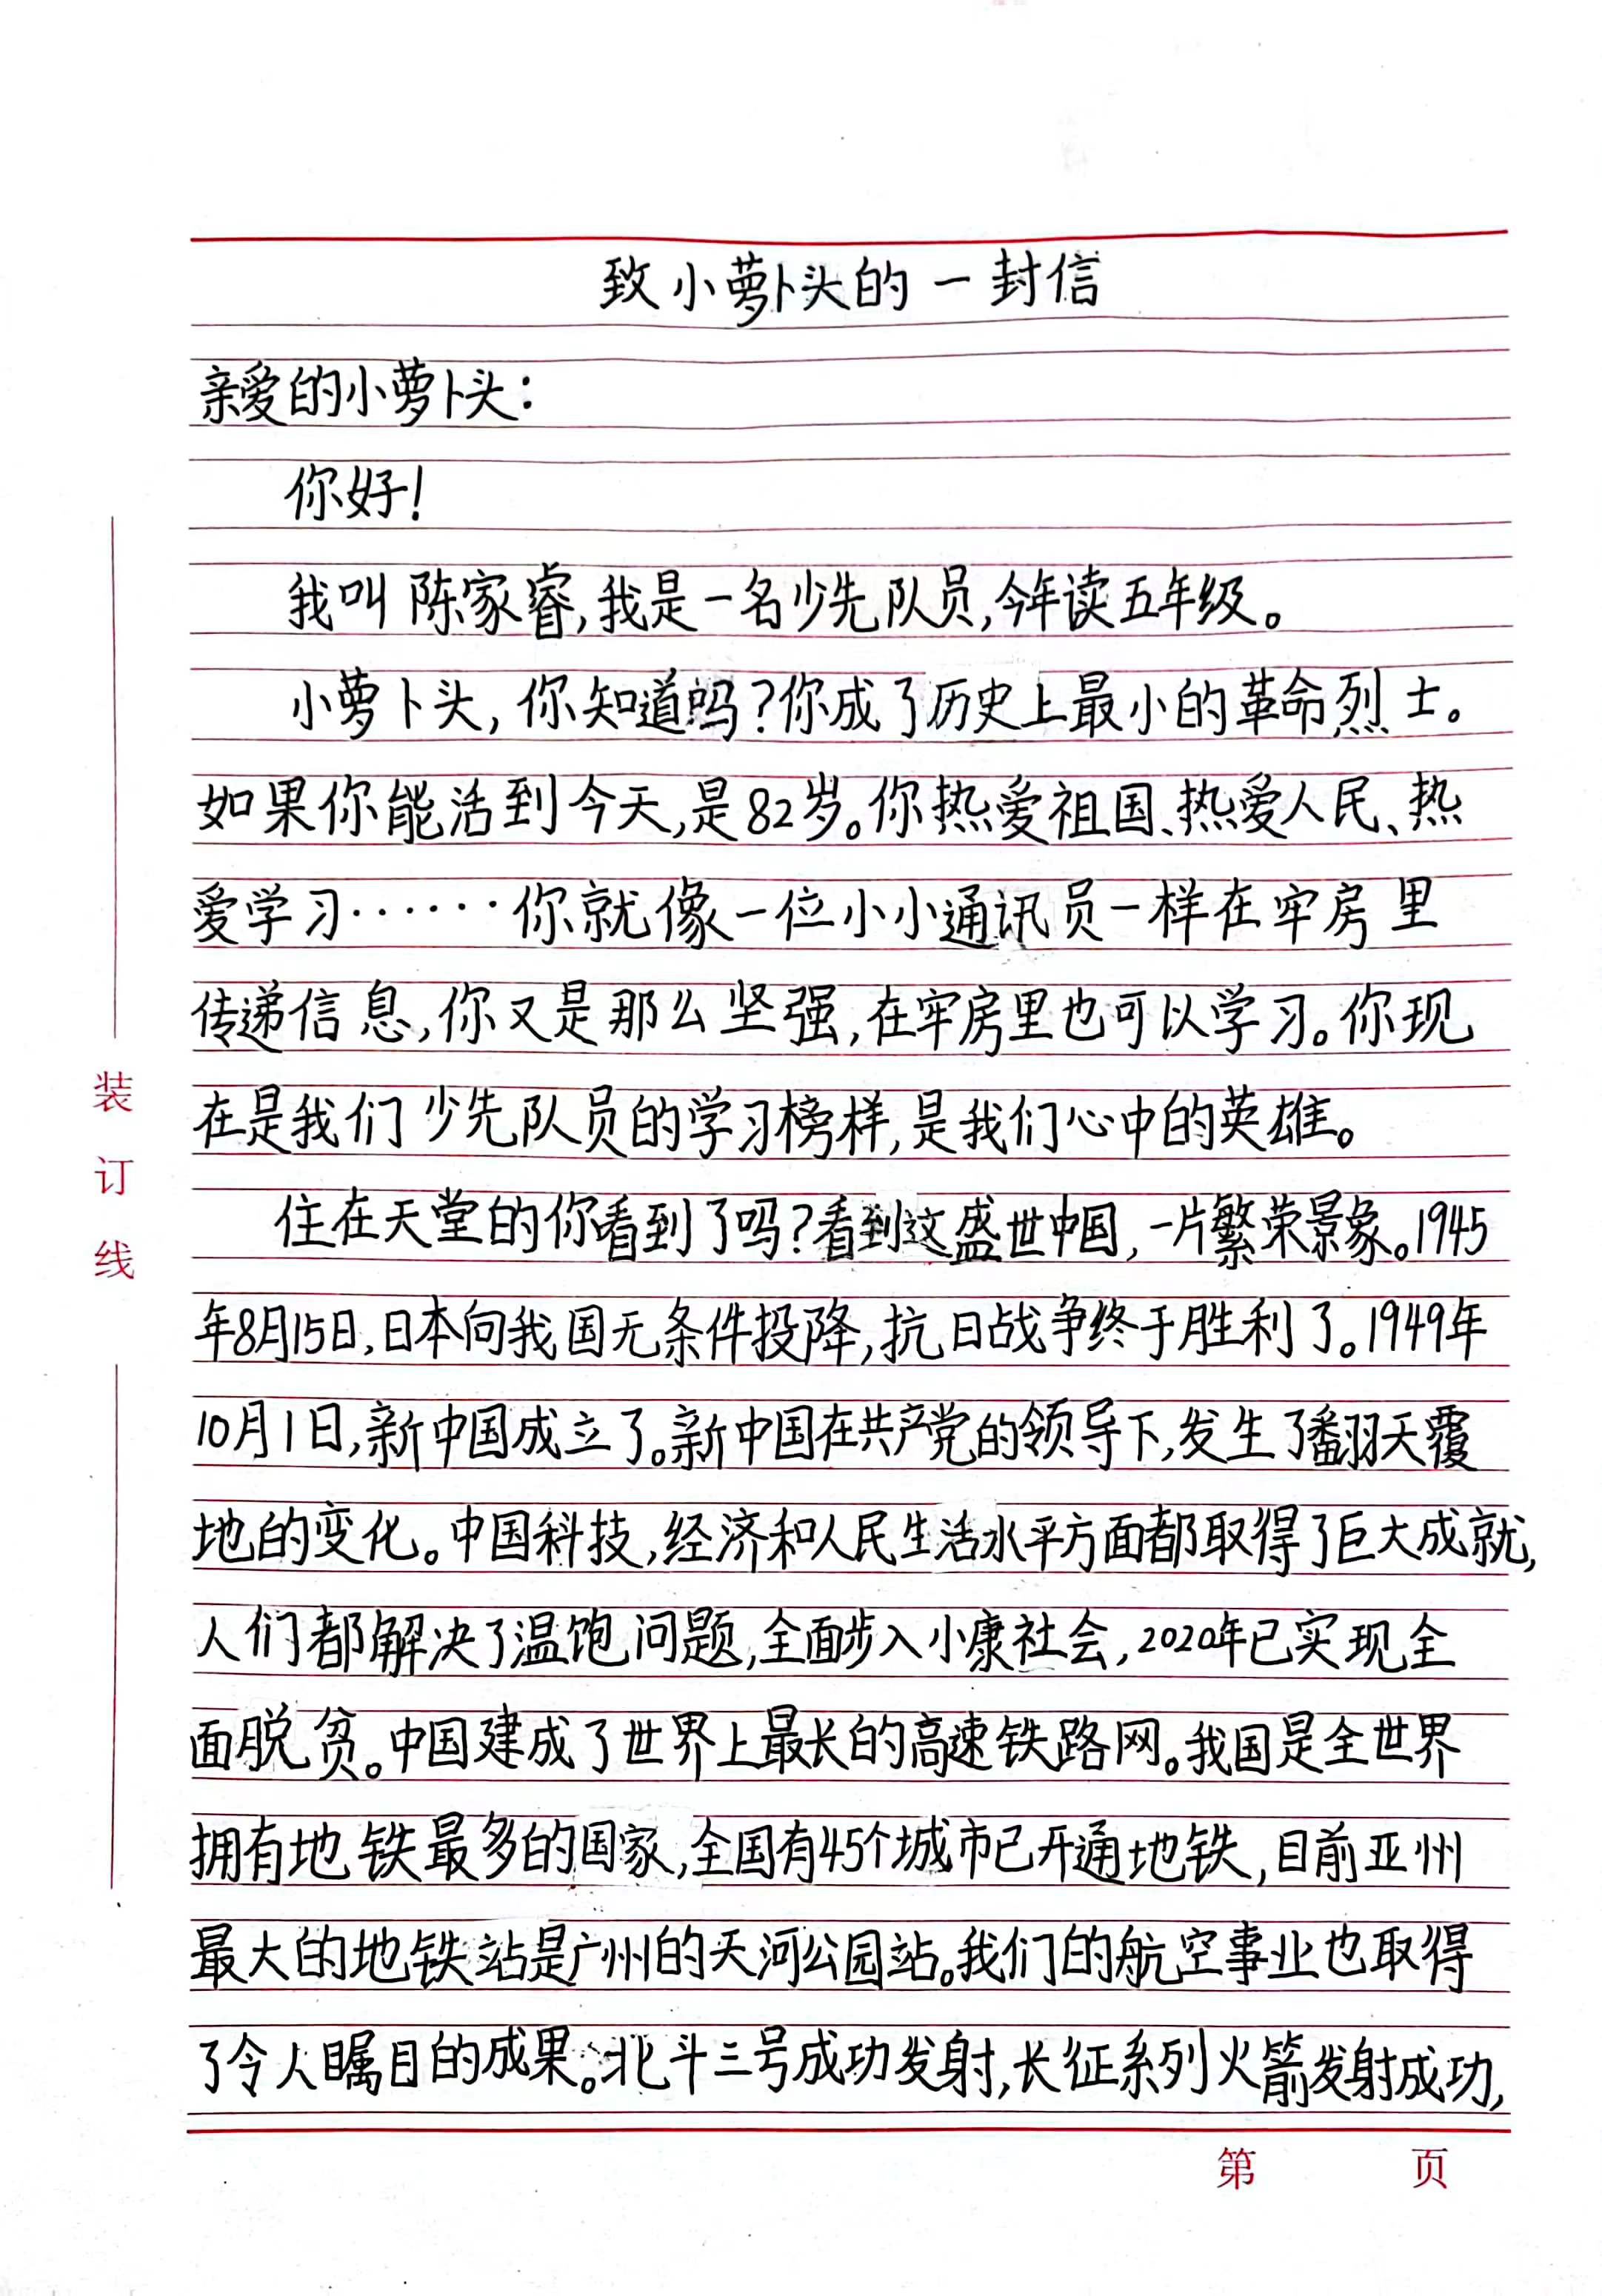 致小萝卜头的一封信
亲爱的小萝卜头：
你好！
我叫陈家睿,我是一名少先队员,今年读五年级。
小萝卜头,你知道吗?你成了历史上最小的革命烈士。
如果你能活到今天,是82岁。你热爱祖国、热爱人民、热
爱学习······你就像一位小小通讯员一样在牢房里
传递信息,你又是那么坚强,在牢房里也可以学习。你现
在是我们少先队员的学习榜样,是我们心中的英雄。
住在天堂的你看到了吗?看到这盛世中国,一片繁荣景象。1945
年8月15日,日本向我国无条件投降,抗日战争终于胜利了。1949年
10月1日,新中国成立了。新中国在共产党的领导下,发生了翻天覆
地的变化。中国科技,经济和人民生活水平方面都取得了巨大成就,
人们都解决了温饱问题,全面步入小康社会,2020年已实现全
面脱贫。中国建成了世界上最长的高速铁路网。我国是全世界
拥有地铁最多的国家,全国有45个城市已开通地铁,目前亚州
最大的地铁站是广州的天河公园站。我们的航空事业也取得
了令人瞩目的成果。北斗三号成功发射,长征系列火箭发射成功,
装
订
线
第 页